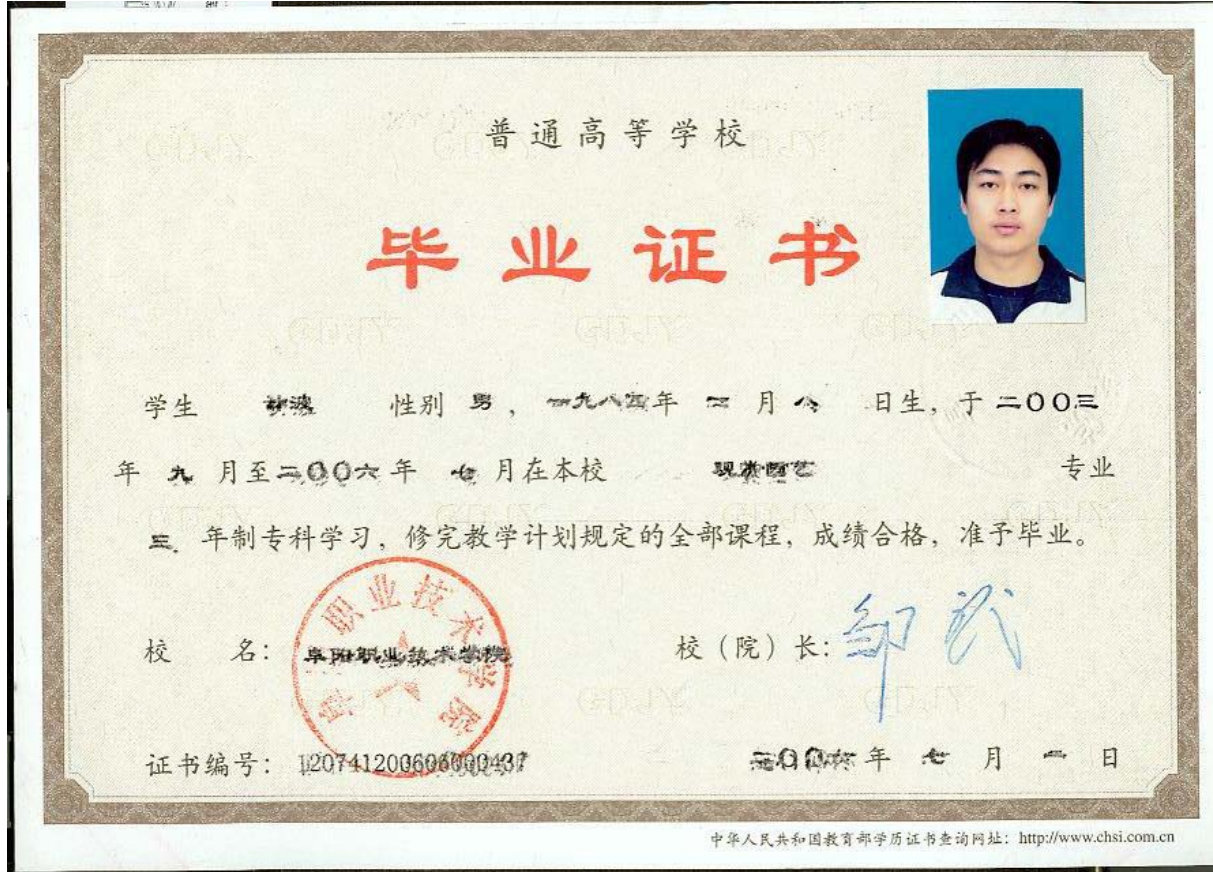 普通高等学校
毕业证书
学生 波 性别 男，一九八四年 二 月 八 日生，于二〇〇三
年 九 月至二〇〇六年 七 月在本校 现代园艺 专业
三 年制专科学习，修完教学计划规定的全部课程，成绩合格，准予毕业。
校 名：阜阳职业技术学院
校（院）长：邹武
阜阳职业技术学院
证书编号：120741200606000437
二〇〇六年 七 月 一 日
中华人民共和国教育部学历证书查询网址：http://www.chsi.com.cn